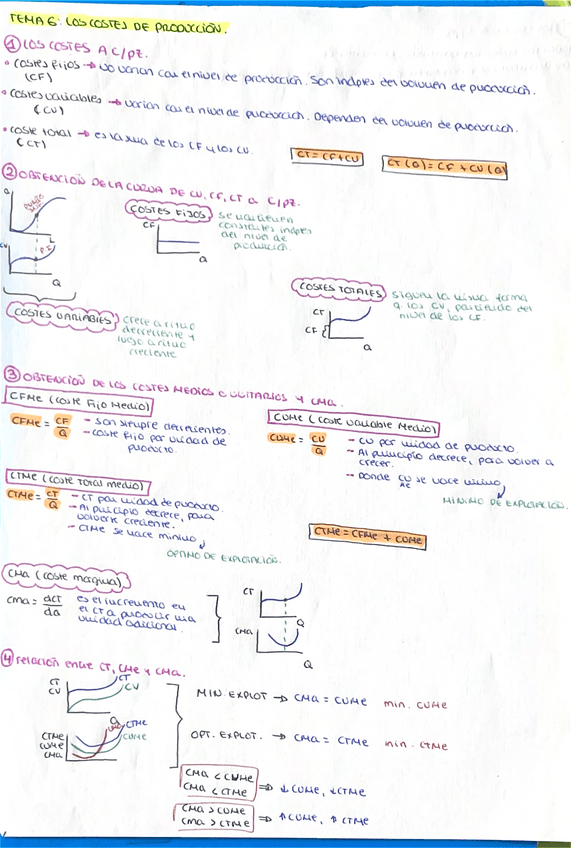 TEMA 6: LOS COSTES DE PRODUCCIÓN.
① LOS COSTES A C/PZ.
• Costes fijos → No varían con el nivel de producción. Son indptes del volumen de producción.
(CF)
• Costes variables → varían con el nivel de producción. Dependen del volumen de producción.
(CV)
• Coste total → es la suma de los CF y los CV.
(CT)
CT = CF + CV
CT(Q) = CF + CV(Q)
② OBTENCIÓN DE LA CURVA DE CV, CF, CT a C/PZ.
Q
L
CV
P.I
Q
COSTES FIJOS
se mantienen
constantes indptes
del nivel de
producción.
CF
Q
COSTES VARIABLES
crece a ritmo
decreciente y
luego a ritmo
creciente
COSTES TOTALES
siguen la misma forma
q los CV, partiendo del
nivel de los CF.
CT
CF
Q
③ OBTENCIÓN DE LOS COSTES MEDIOS O UNITARIOS Y CMa.
CFMe (Coste Fijo Medio)
CFMe = CF/Q
- Son siempre decrecientes.
- Coste fijo por unidad de
producto.
CVMe (Coste Variable Medio)
CVMe = CV/Q
- CV por unidad de producto.
- Al principio decrece, para volver a
crecer.
- Donde CVMe se hace mínimo
MÍNIMO DE EXPLOTACIÓN.
CTMe (Coste total medio)
CTMe = CT/Q
- CT por unidad de producto.
- Al principio decrece, para
volverse creciente.
- CTMe se hace mínimo
ÓPTIMO DE EXPLOTACIÓN.
CTMe = CFMe + CVMe
CMa (Coste marginal)
CMa = dCT/dQ
es el incremento en
el CT a producir una
unidad adicional.
CT
Q
CMa
Q
④ relación entre CT, CMe y CMa.
CT
CV
CT
CV
Q
CTMe
CVMe
CMa
CMa
CTMe
CVMe
MIN. EXPLOT → CMa = CVMe min. CVMe
OPT. EXPLOT. → CMa = CTMe min. CTMe
CMa < CVMe
CMa < CTMe
⇒ ↓ CVMe, ↓ CTMe
CMa > CVMe
CMa > CTMe
⇒ ↑ CVMe, ↑ CTMe